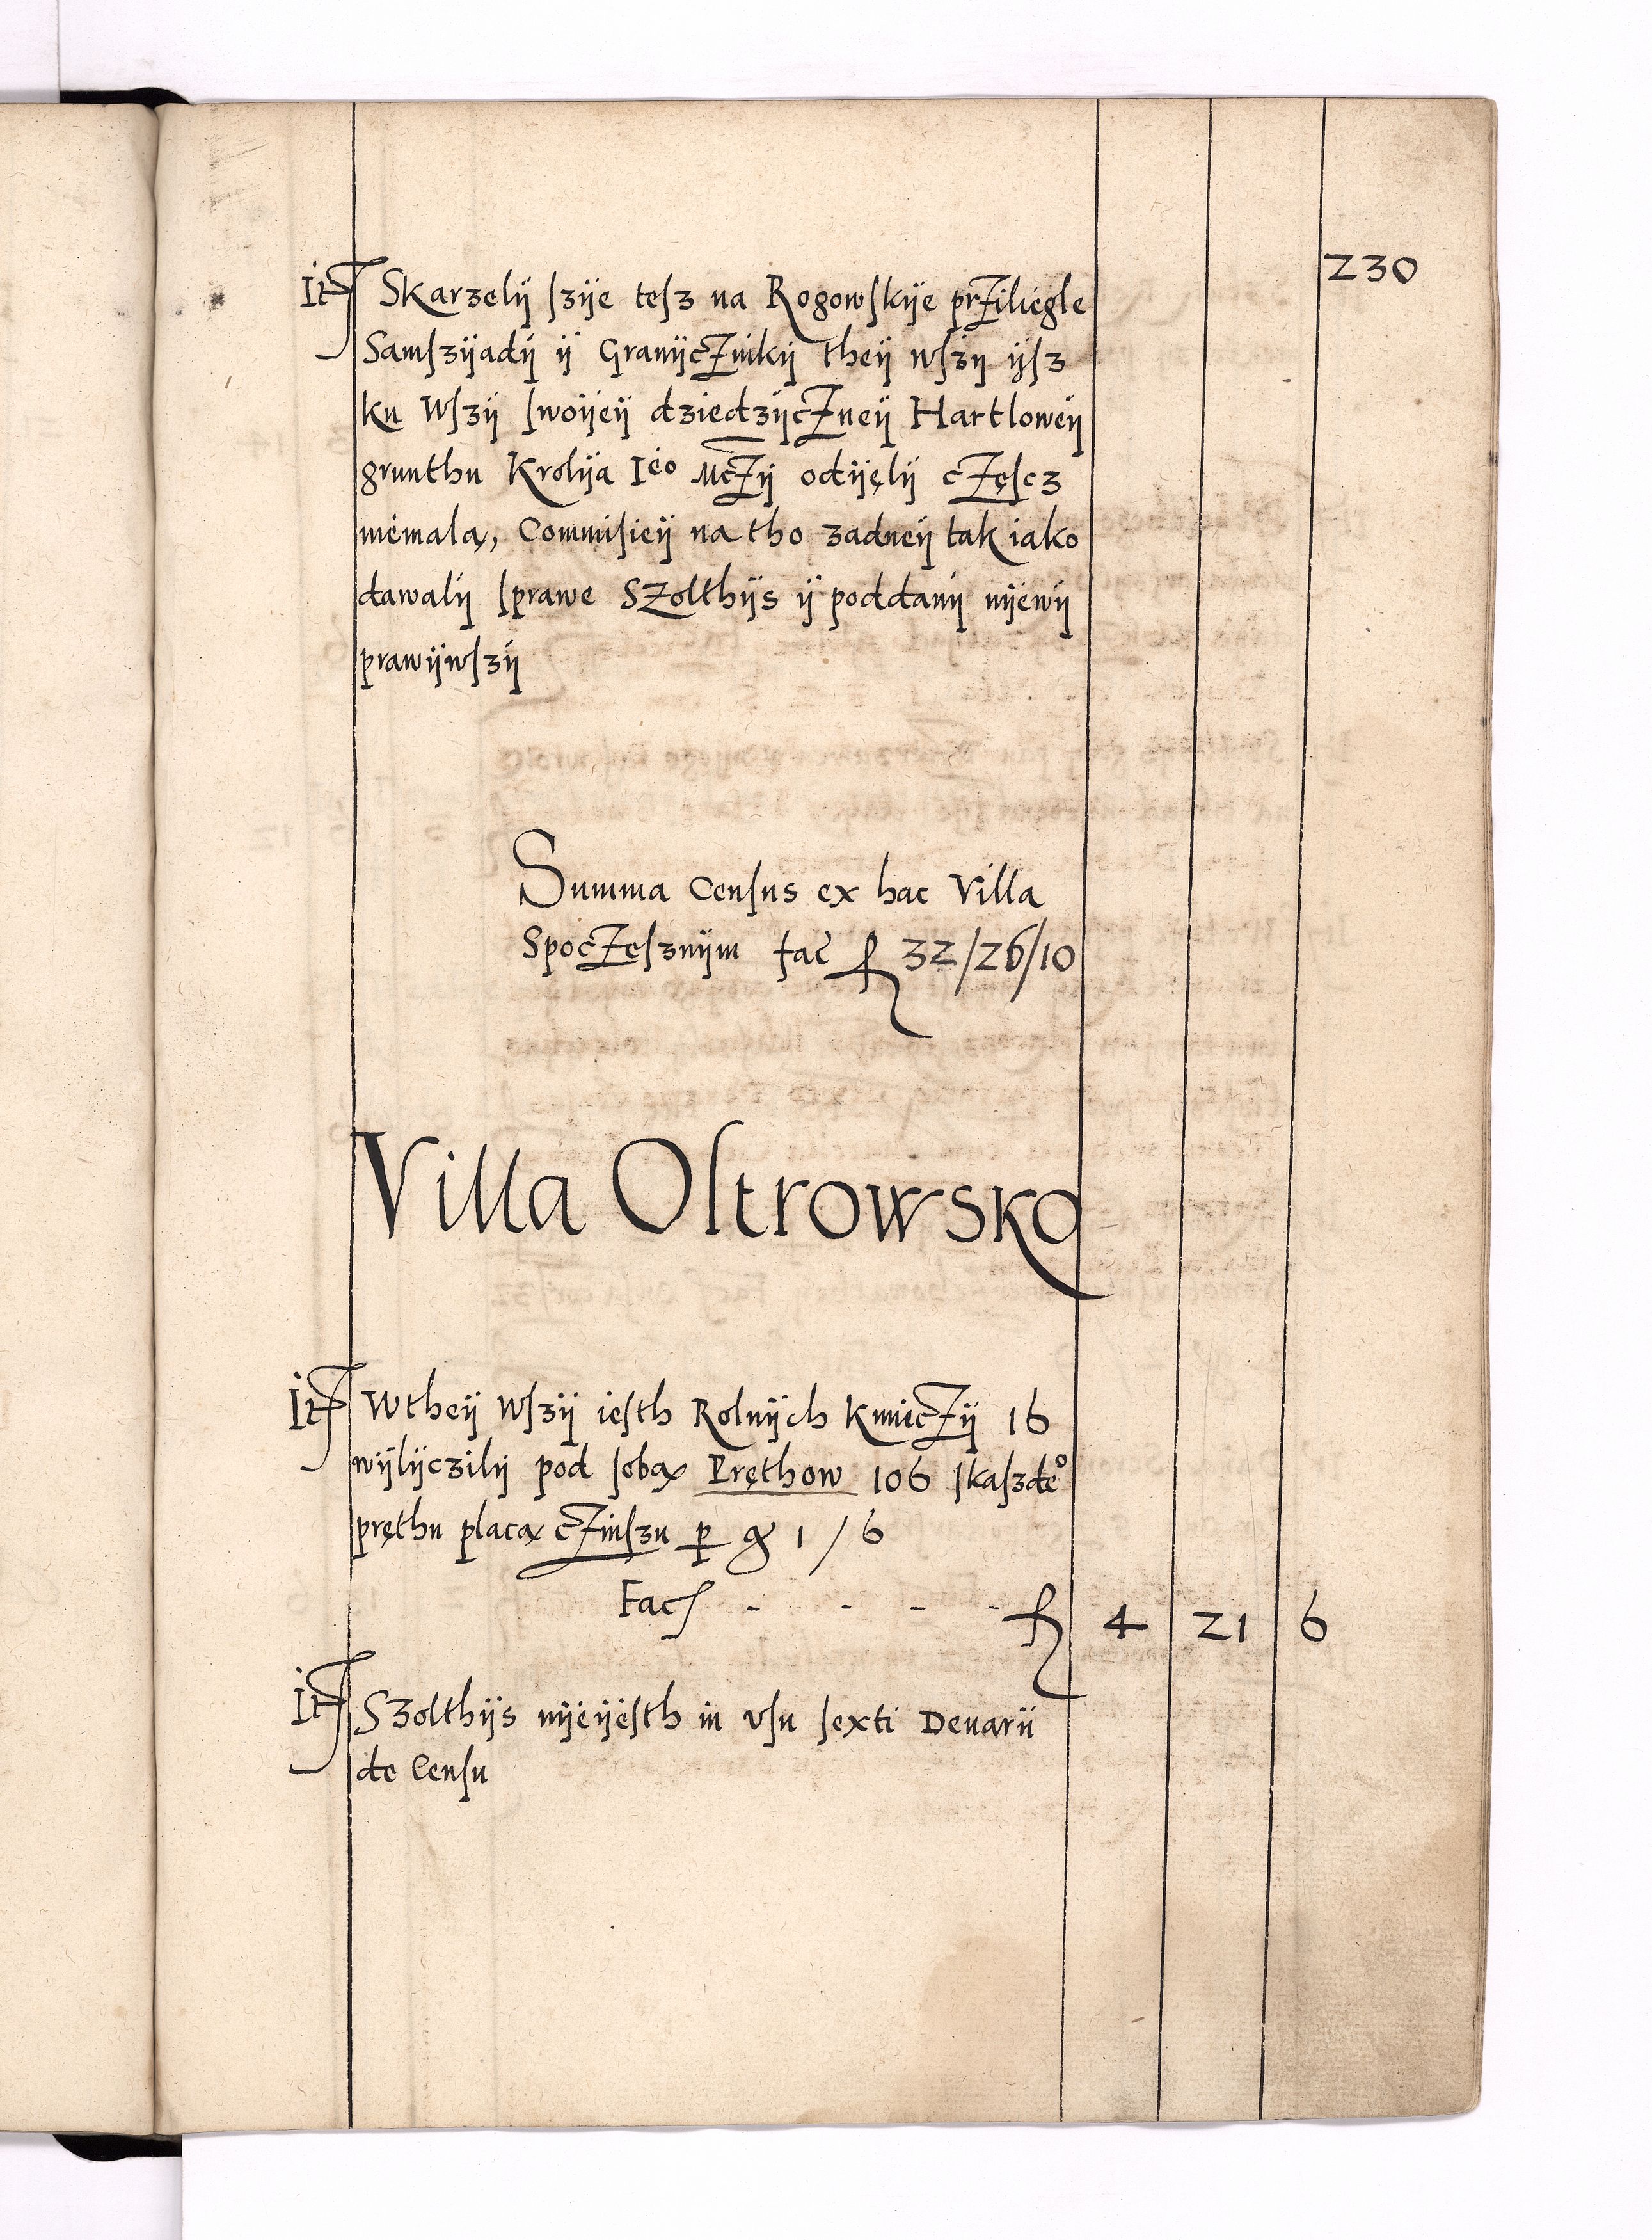 230
It Skarzelÿ ſzÿe teſz na Rogowſkÿe prziliegle
Samſzÿadÿ ÿ Granÿcznikÿ theÿ wſzÿ ÿſz
ku Wſzÿ ſwoÿeÿ dziedzÿczneÿ Hartloweÿ
grunthu Krolÿa Ieo Mczÿ odÿęlÿ częſcz
niemalą, Commiſieÿ na tho zadneÿ tak iako
dawalÿ ſprawe Szolthÿs ÿ poddanÿ nÿewÿ
prawÿwſzÿ
Summa Cenſus ex hac Villa
Spoczeſznÿm fac fl 32/26/10
Villa Oſtrowsko
It Wtheÿ Wſzÿ ieſth Rolnÿch Kmieczÿ 16
wÿlÿczilÿ pod ſobą Pręthow 106 ſkaſzdeo
pręthu placą czinſzu p g 1/6
Fac - - - - fl 4 21 6
It Szolthÿs nÿeÿeſth in vſu ſexti Denarii
de Cenſu